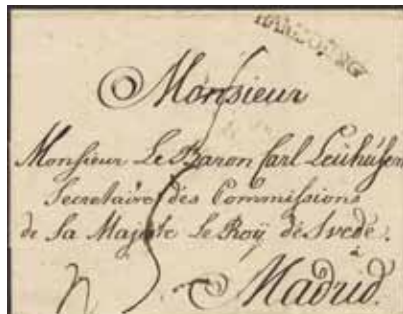 HAMBOURG
Monsieur
Monsieur Le Baron Carl Leúhúsen
Secretaire des Commissions
de Sa Majste Le Roÿ de Svede.
à
Madrid.